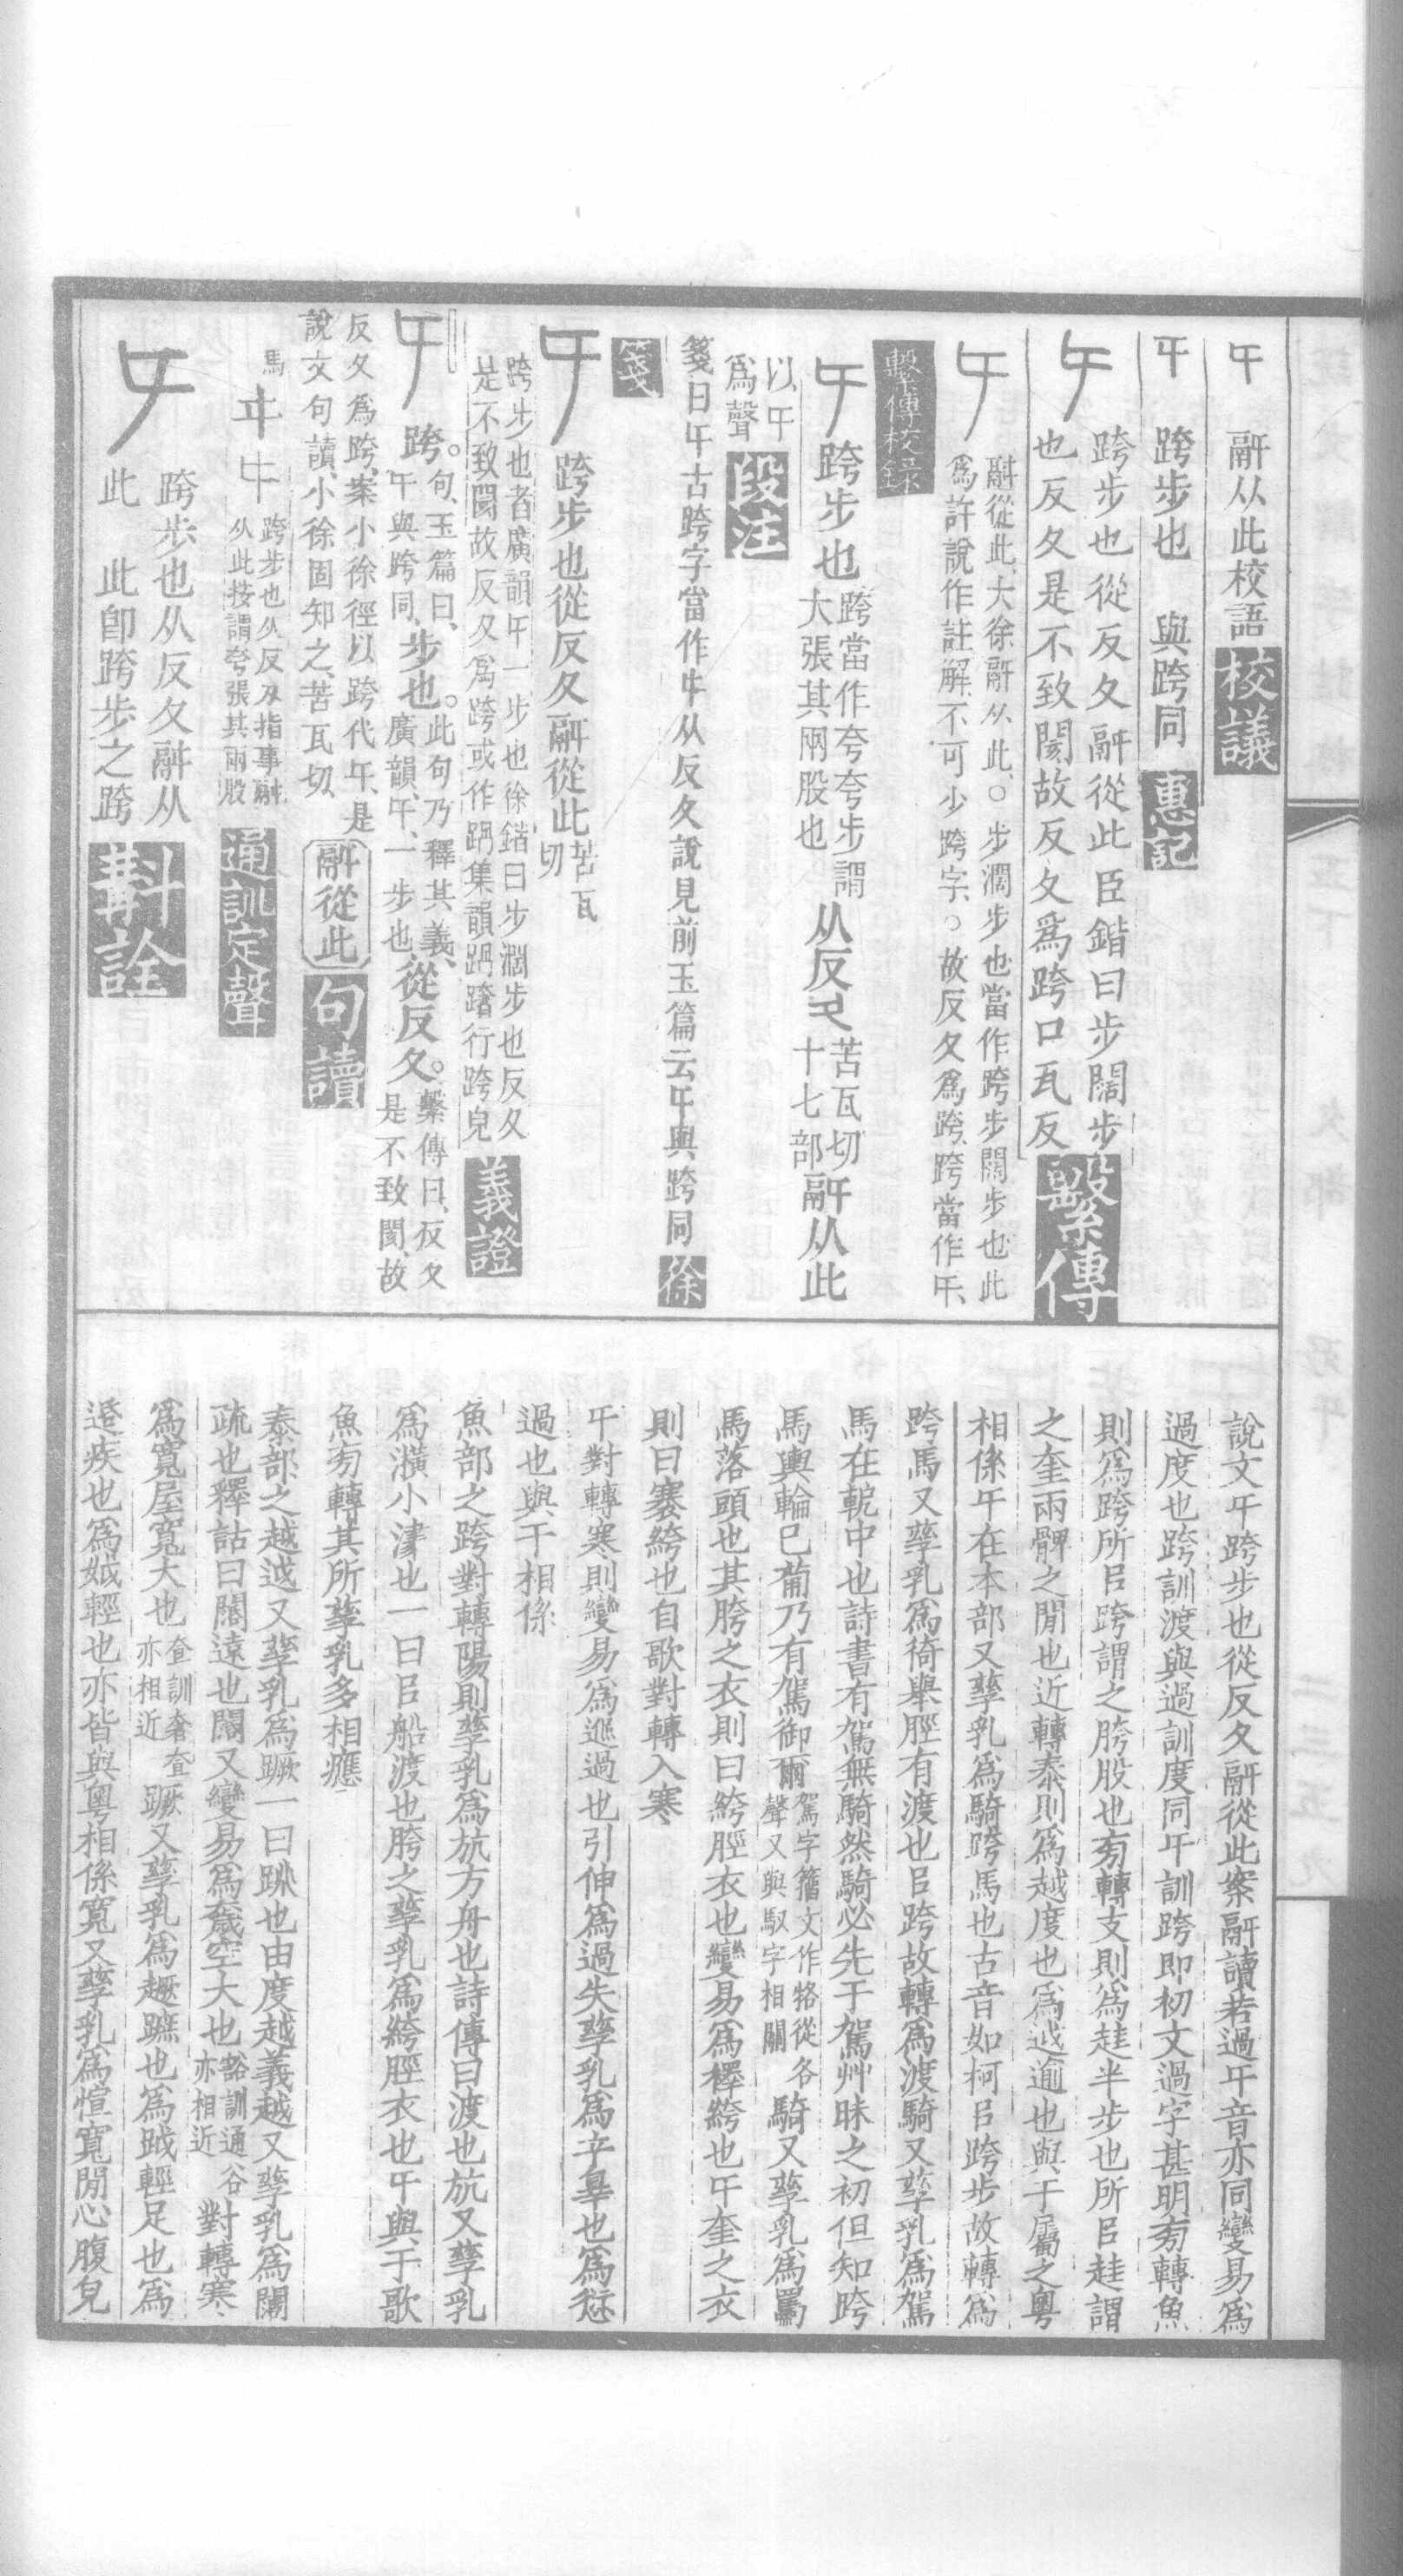 㐄 𩰫从此校語 校議
㐄 跨步也 與跨同 惠記
㐄 跨步也從反夂𩰫從此臣鍇曰步闊步
也反夂是不致閡故反夂爲跨口瓦反 繫傳
㐄 𩰫從此、大徐𩰫从此、○步濶步也當作跨步闊步也此
爲許說作註解、不可少跨字、○故反夂爲跨、跨當作㐄、
繫傳校錄
㐄 跨步也 跨當作夸夸步謂
大張其兩股也 从反夂 苦瓦切
十七部 𩰫从此
以㐄
爲聲 段注
箋曰㐄古跨字當作㐄从反夂說見前玉篇云㐄與跨同 徐
箋
㐄 跨步也從反夂𩰫從此 苦瓦
切
跨步也者廣韻㐄一步也徐鍇曰步濶步也反夂
是不致閡故反夂爲跨或作踻集韻踻躇行跨皃 義證
㐄 跨。句、玉篇曰、
㐄與跨同、步也。此句乃釋其義、
廣韻、㐄、一步也、從反夂。繫傳曰、反夂
是不致閡、故
反夂爲跨、案小徐徑以跨代㐄、是
說文句讀、小徐固知之、苦瓦切、 𩰫從此 句讀
馬 㐄 跨步也从反夂指事𩰫
从此按謂夸張其兩股 通訓定聲
㐄 跨步也从反夂𩰫从
此 此卽跨步之跨 斠詮
說文㐄跨步也從反夂𩰫從此案𩰫讀若過㐄音亦同變易爲
過度也跨訓渡與過訓度同㐄訓跨即初文過字甚明㫄轉魚
則爲跨所㠯跨謂之胯股也㫄轉支則爲䞨半步也所㠯䞨謂
之奎兩髀之閒也近轉泰則爲越度也爲𨒋逾也與于屬之粵
相係㐄在本部又孳乳爲騎跨馬也古音如柯㠯跨步故轉爲
跨馬又孳乳爲徛舉脛有渡也㠯跨故轉爲渡騎又孳乳爲駕
馬在軛中也詩書有駕無騎然騎必先于駕艸昧之初但知跨
馬輿輪已葡乃有駕御爾 駕字籒文作㸦從各
聲又與馭字相關 騎又孳乳爲羈
馬落頭也其胯之衣則曰絝脛衣也變易爲襗絝也㐄奎之衣
則曰褰絝也自歌對轉入寒
㐄對轉寒則變易爲䢫過也引伸爲過失孳乳爲䇂辠也爲愆
過也與干相係
魚部之跨對轉陽則孳乳爲斻方舟也詩傳曰渡也斻又孳乳
爲潢小津也一曰㠯船渡也胯之孳乳爲絝脛衣也㐄與于歌
魚㫄轉其所孳乳多相應
泰部之越𨒋又孳乳爲蹶一曰跳也由度越義越又孳乳爲闊
疏也釋詁曰闊遠也闊又變易爲奯空大也 豁訓通谷
亦相近 對轉寒
爲寬屋寬大也 奆訓奢奆
亦相近 蹶又孳乳爲趰蹠也爲䟠輕足也爲
𨒬疾也爲娍輕也亦皆與粵相係寬又孳乳爲愃寬閒心腹皃